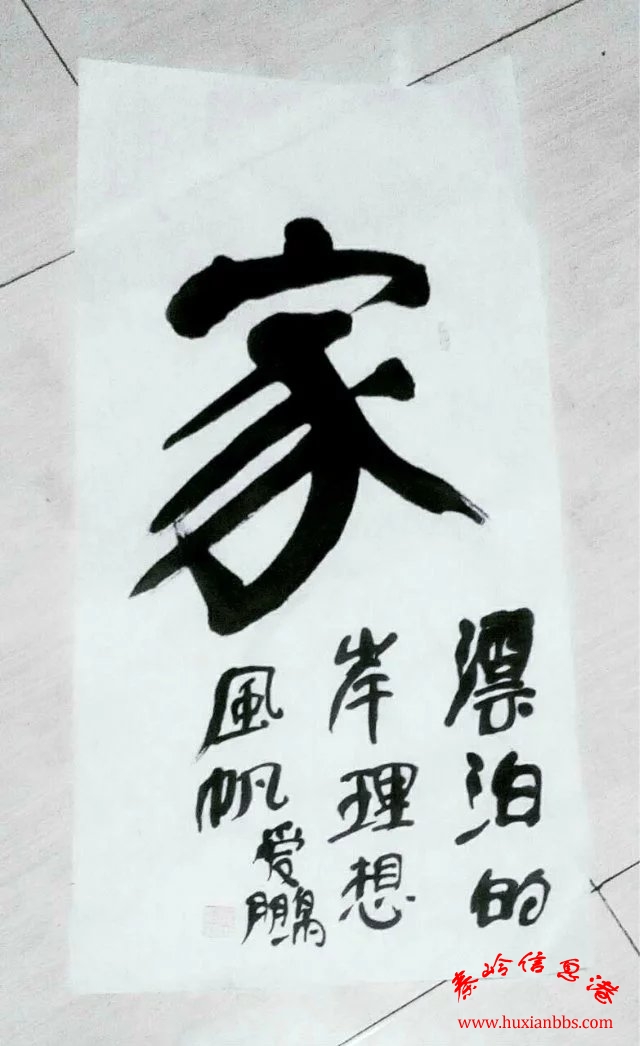 家
漂泊的
岸理想
風帆
爱鹏
秦岭信息港
www.huxianbbs.com